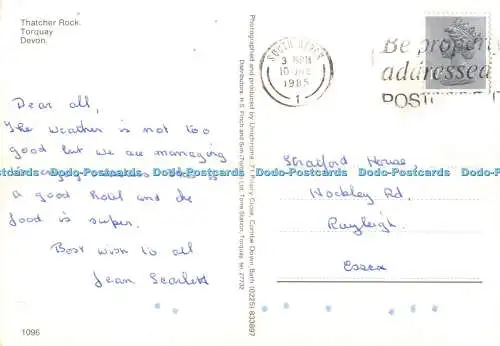 Thatcher Rock.
Torquay
Devon.
Dear all,
The weather is not too
good but we are managing
is
a good hotel and the
food is super.
Best wish to all
Jean Scarlett
1096
Photographed and produced by Unichrome, 1 Priory Close, Combe Down, Bath. (0225) 833897
Distributors: H.S. Finch and Son (Torquay) Ltd, Torre Station, Torquay. tel. 27732
SOUTH DEVON
3 PM
10 JNE
1985
1
Be properly
addressed
POST
Stratford House,
Hockley Rd,
Rayleigh.
Essex
Dodo-Postcards Dodo-Postcards Dodo-Postcards Dodo-Postcards